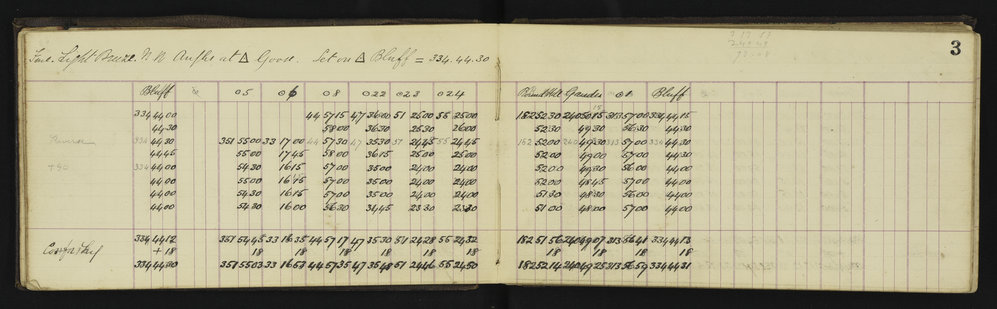 3
Fine. Light Breeze. N N Angles at △ Goose. Set on △ Bluff = 334.44.30
Bluff ⊙5 ⊙6 ⊙8 ⊙22 ⊙23 ⊙24 Round Hill ⊙1 Bluff
334 44 00 44 57 15 47 36 00 51 25 00 55 25 00 182 52 30 240 50 15 313 57 00 334 44 15
44 30 58 00 36 30 25 30 26 00 52 30 49 30 56 30 44 30
334 44 30 351 55 00 33 17 00 44 57 30 47 35 30 51 24 45 55 24 45 182 52 00 240 49 30 313 57 00 334 44 30
44 45 55 00 17 45 58 00 36 15 25 00 25 00 52 00 49 00 57 00 44 30
334 44 00 54 30 16 15 57 00 35 00 24 00 24 00 52 00 49 30 56 00 44 00
44 00 55 00 16 15 57 00 35 00 24 00 24 00 52 00 48 45 57 00 44 00
44 00 54 30 16 15 57 00 35 00 24 00 24 00 51 30 48 30 56 00 44 00
44 00 54 30 16 00 56 30 34 45 23 30 23 30 51 00 48 00 57 00 44 00
334 44 12 351 54 45 33 16 35 44 57 17 47 35 30 51 24 28 55 24 32 182 51 56 240 49 07 313 56 41 334 44 13
+ 18 18 18 18 18 18 18 18 18 18 18
334 44 30 351 55 03 33 16 53 44 57 35 47 35 48 51 24 46 55 24 50 182 52 14 240 49 25 313 56 59 334 44 31